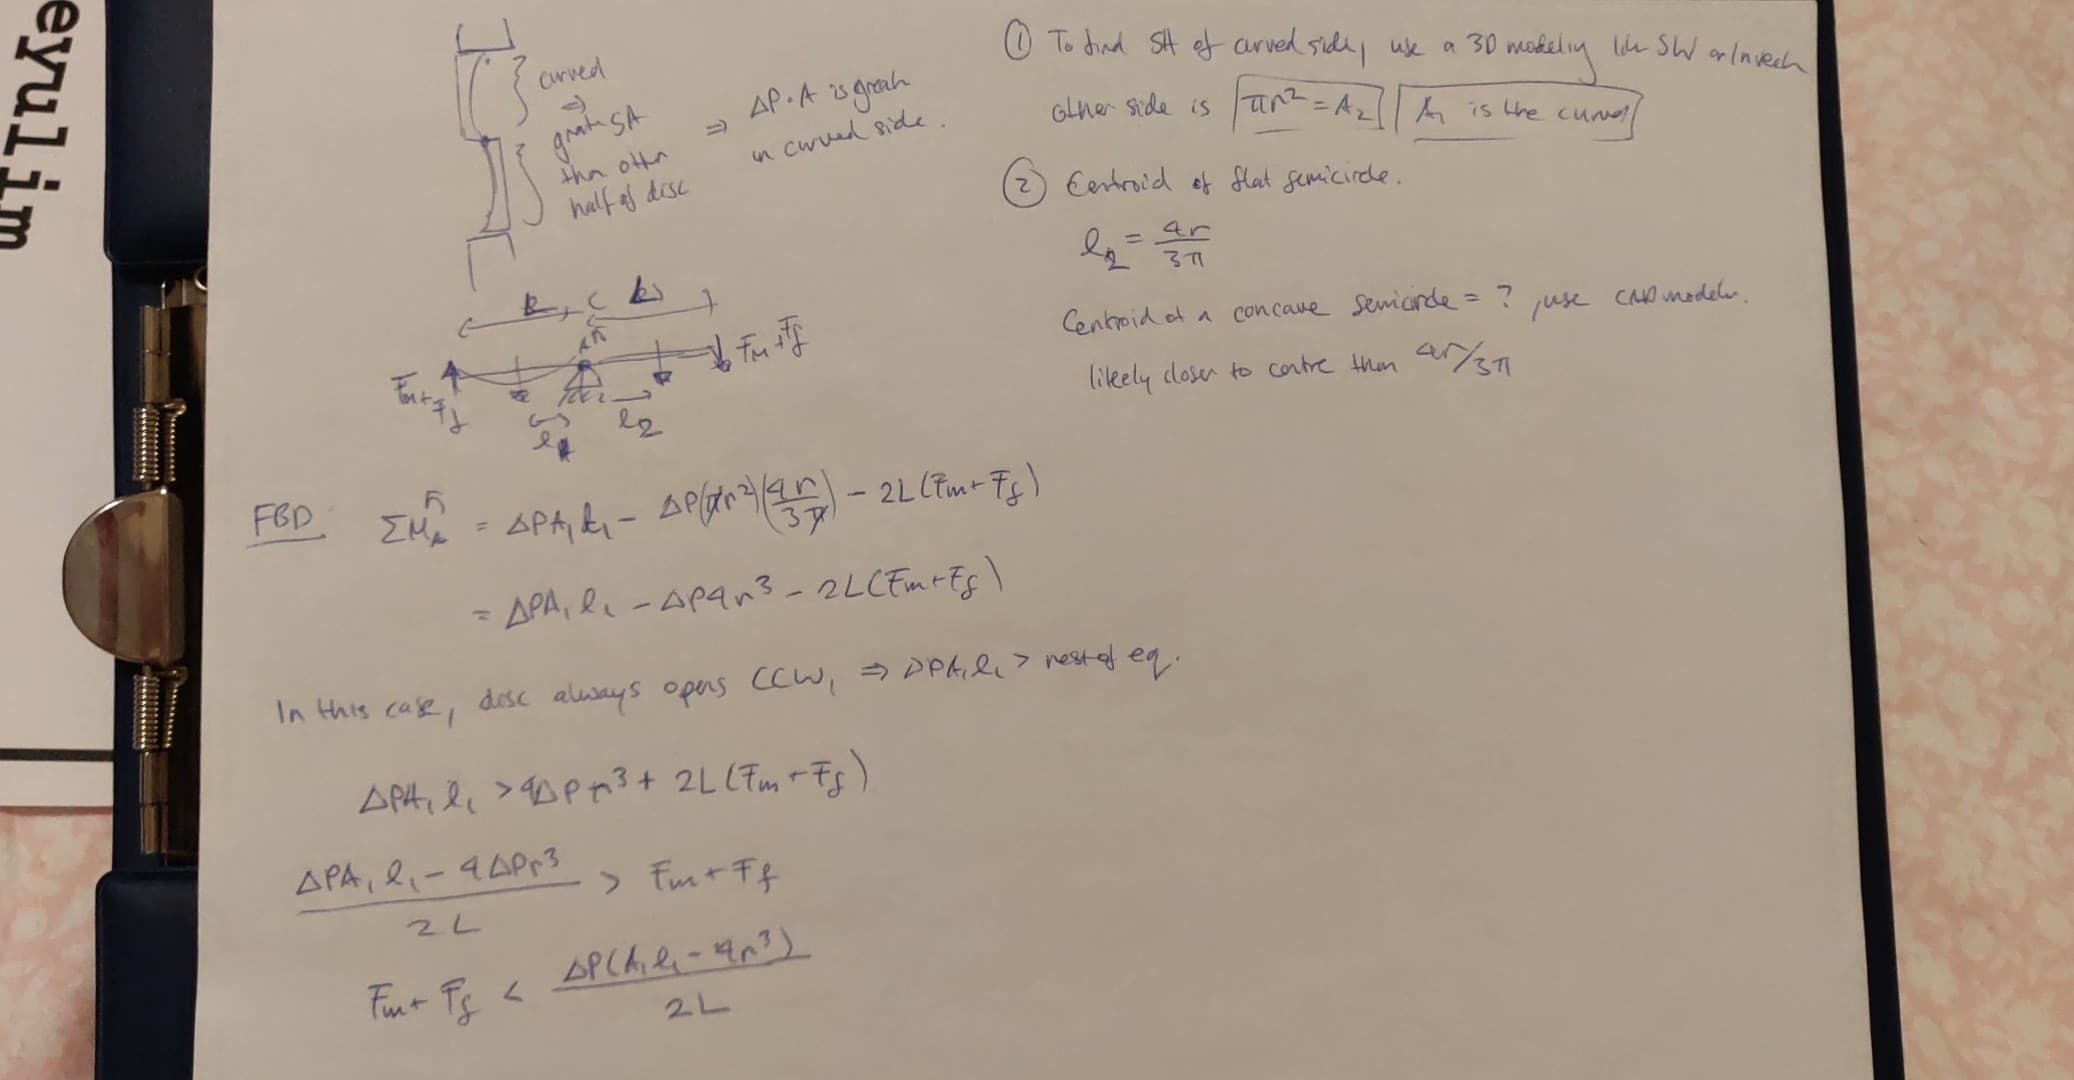 eyulim
curved
⇒
greater SA
than other
half of disc
⇒ ΔP·A is greater
in curved side.
① To find SA of curved side, use a 3D modeling like SW or Inventor
other side is πr² = A₂ A₁ is the curved
② Centroid of flat semicircle.
l₂ = 4r/3π
Centroid of a concave semicircle = ? , use CAD modeler.
likely closer to centre than 4r/3π
Fm + Ff
Fm + Ff
l₁
l₂
FBD ΣM_A = ΔPA₁l₁ - ΔP(πr²)(4r/3π) - 2L(Fm + Ff)
= ΔPA₁l₁ - ΔP4r³ - 2L(Fm + Ff)
In this case, disc always opens CCW, ⇒ ΔPA₁l₁ > rest of eq.
ΔPA₁l₁ > 4ΔPr³ + 2L(Fm + Ff)
(ΔPA₁l₁ - 4ΔPr³)/2L > Fm + Ff
Fm + Ff < ΔP(A₁l₁ - 4r³)/2L